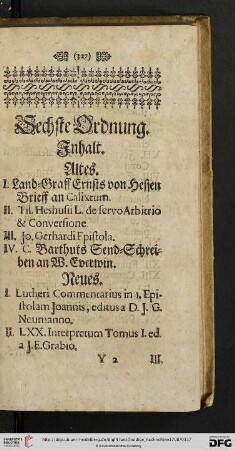 (327)
Sechste Ordnung.
Inhalt.
Altes.
I. Land-Graff Ernsts von Hessen
Brieff an Calixtum.
II. Til. Heshusii L. de servo Arbitrio
& Conversione
III. Jo. Gerhardi Epistola.
IV. C. Barthuts Send-Schrei-
ben an W. Everwin.
Neues.
I. Lutheri Commentarius in 1. Epi-
stolam Joannis, editus a D. J. G.
Neumanno.
II. LXX. Interpretum Tomus I. ed.
a J. E. Grabio.
Y 2 III.
UNIVERSITÄTS-BIBLIOTHEK HEIDELBERG
DFG